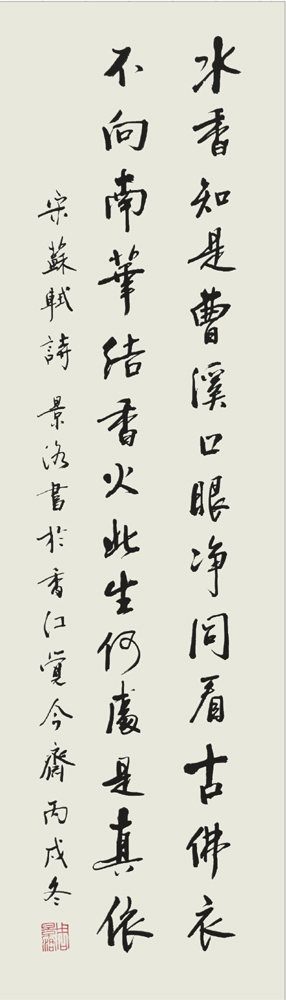 水香知是曹溪口眼净同看古佛衣
不向南華结香火此生何處是真依
宋蘇軾詩 景洛書於香江覺今齋丙戌冬